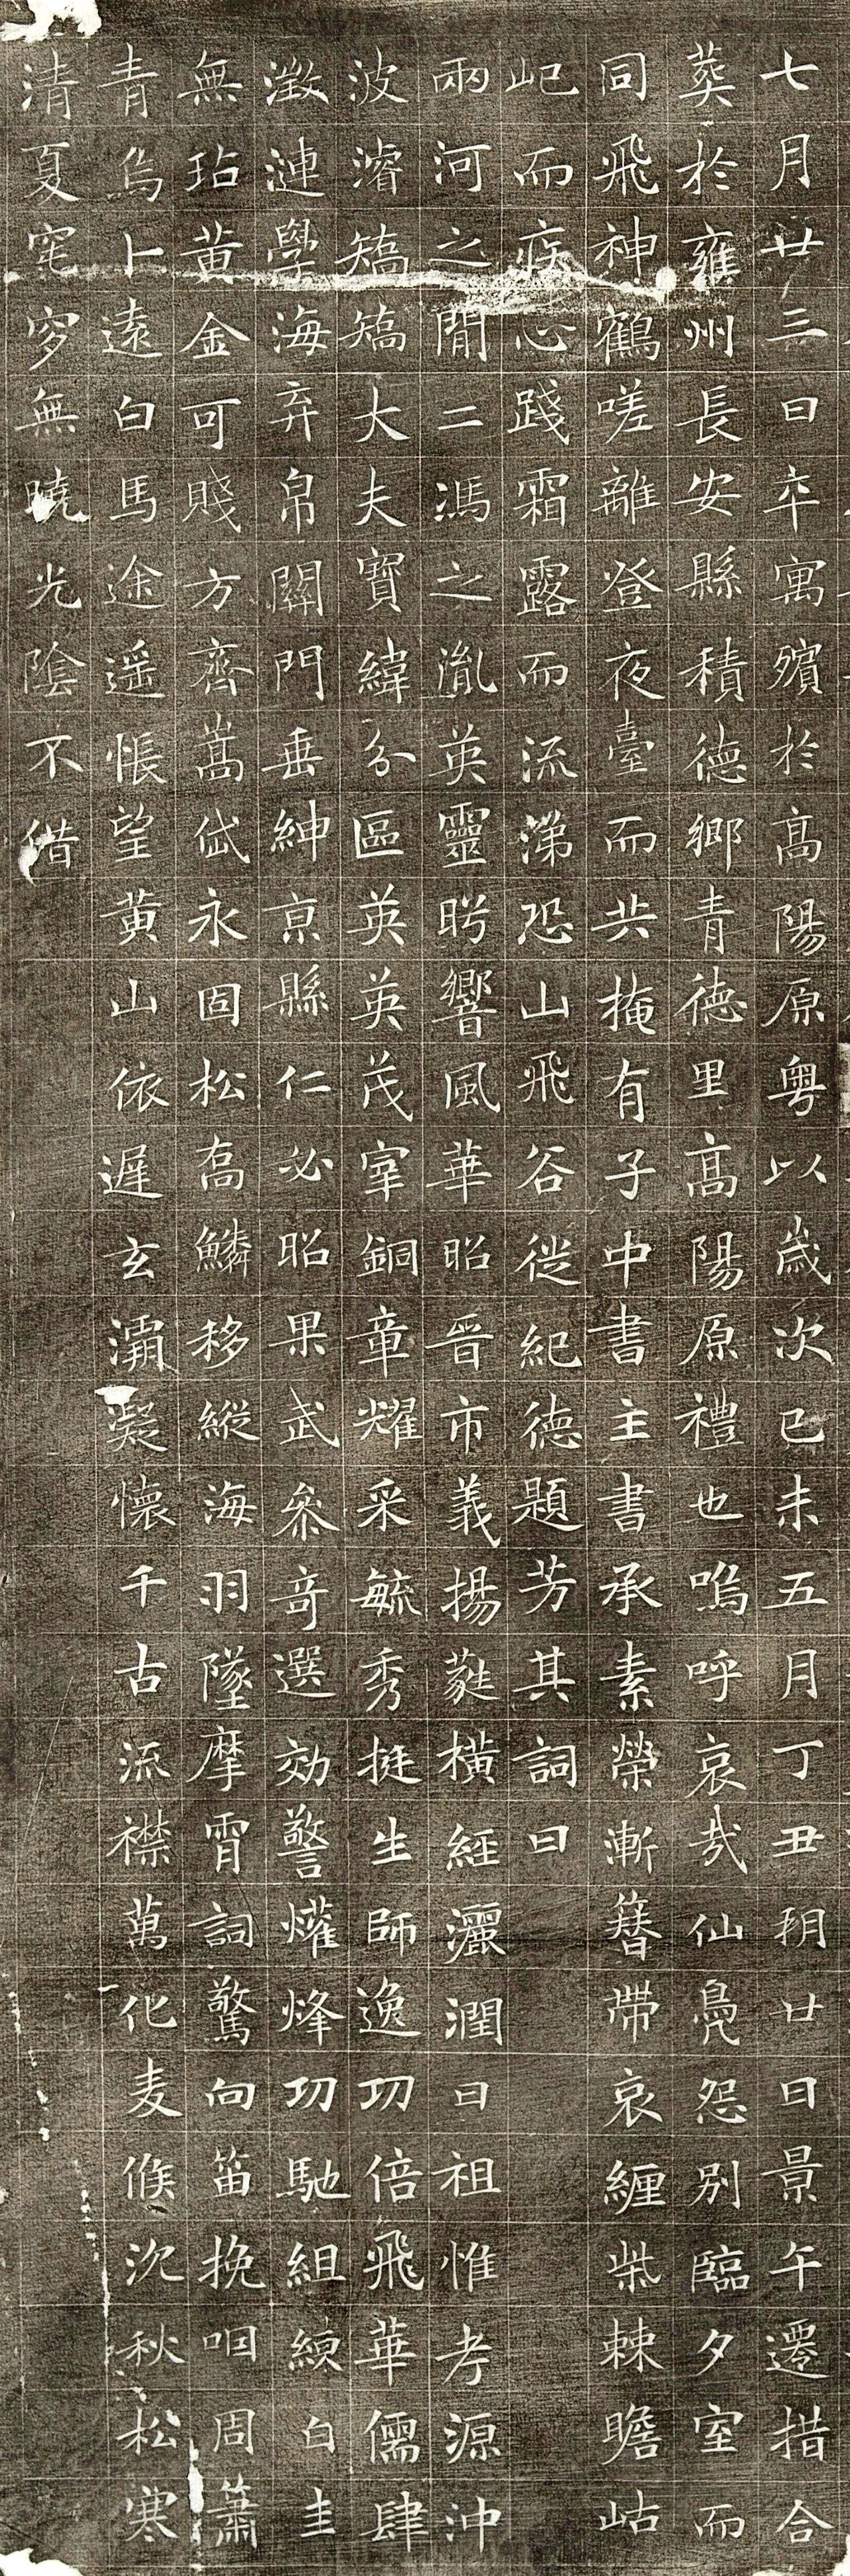 七月廿三日卒寓殯於高陽原粤以歲次己未五月丁丑朔廿日景午遷措合
葬於雍州長安縣積德鄉青德里高陽原禮也嗚呼哀哉仙鳧怨別臨夕室而
同飛神鶴嗟離登夜臺而共掩有子中書主書承素榮漸簪帶哀纏柴棘瞻岵
屺而疚心踐霜露而流涕恐山飛谷徙紀德題芳其詞曰
兩河之間二馮之胤英靈肸響風華昭晉市義揚蕤橫經灑潤曰祖惟考源沖
波濬矯矯大夫寶緯分區英英茂宰銅章耀采毓秀挺生師逸功倍飛華儒肆
激漣學海弃帛關門垂紳京縣仁必昭果武參奇選効警爟烽功馳組練白圭
無玷黃金可賤方齊嵩岱永固松喬鱗移縱海羽墜摩霄詞驚向笛挽咽周簫
青烏卜遠白馬途遥悵望黃山依遲玄灞凝懷千古流襟萬化麦候沈秋松寒
清夏窀穸無曉光陰不借